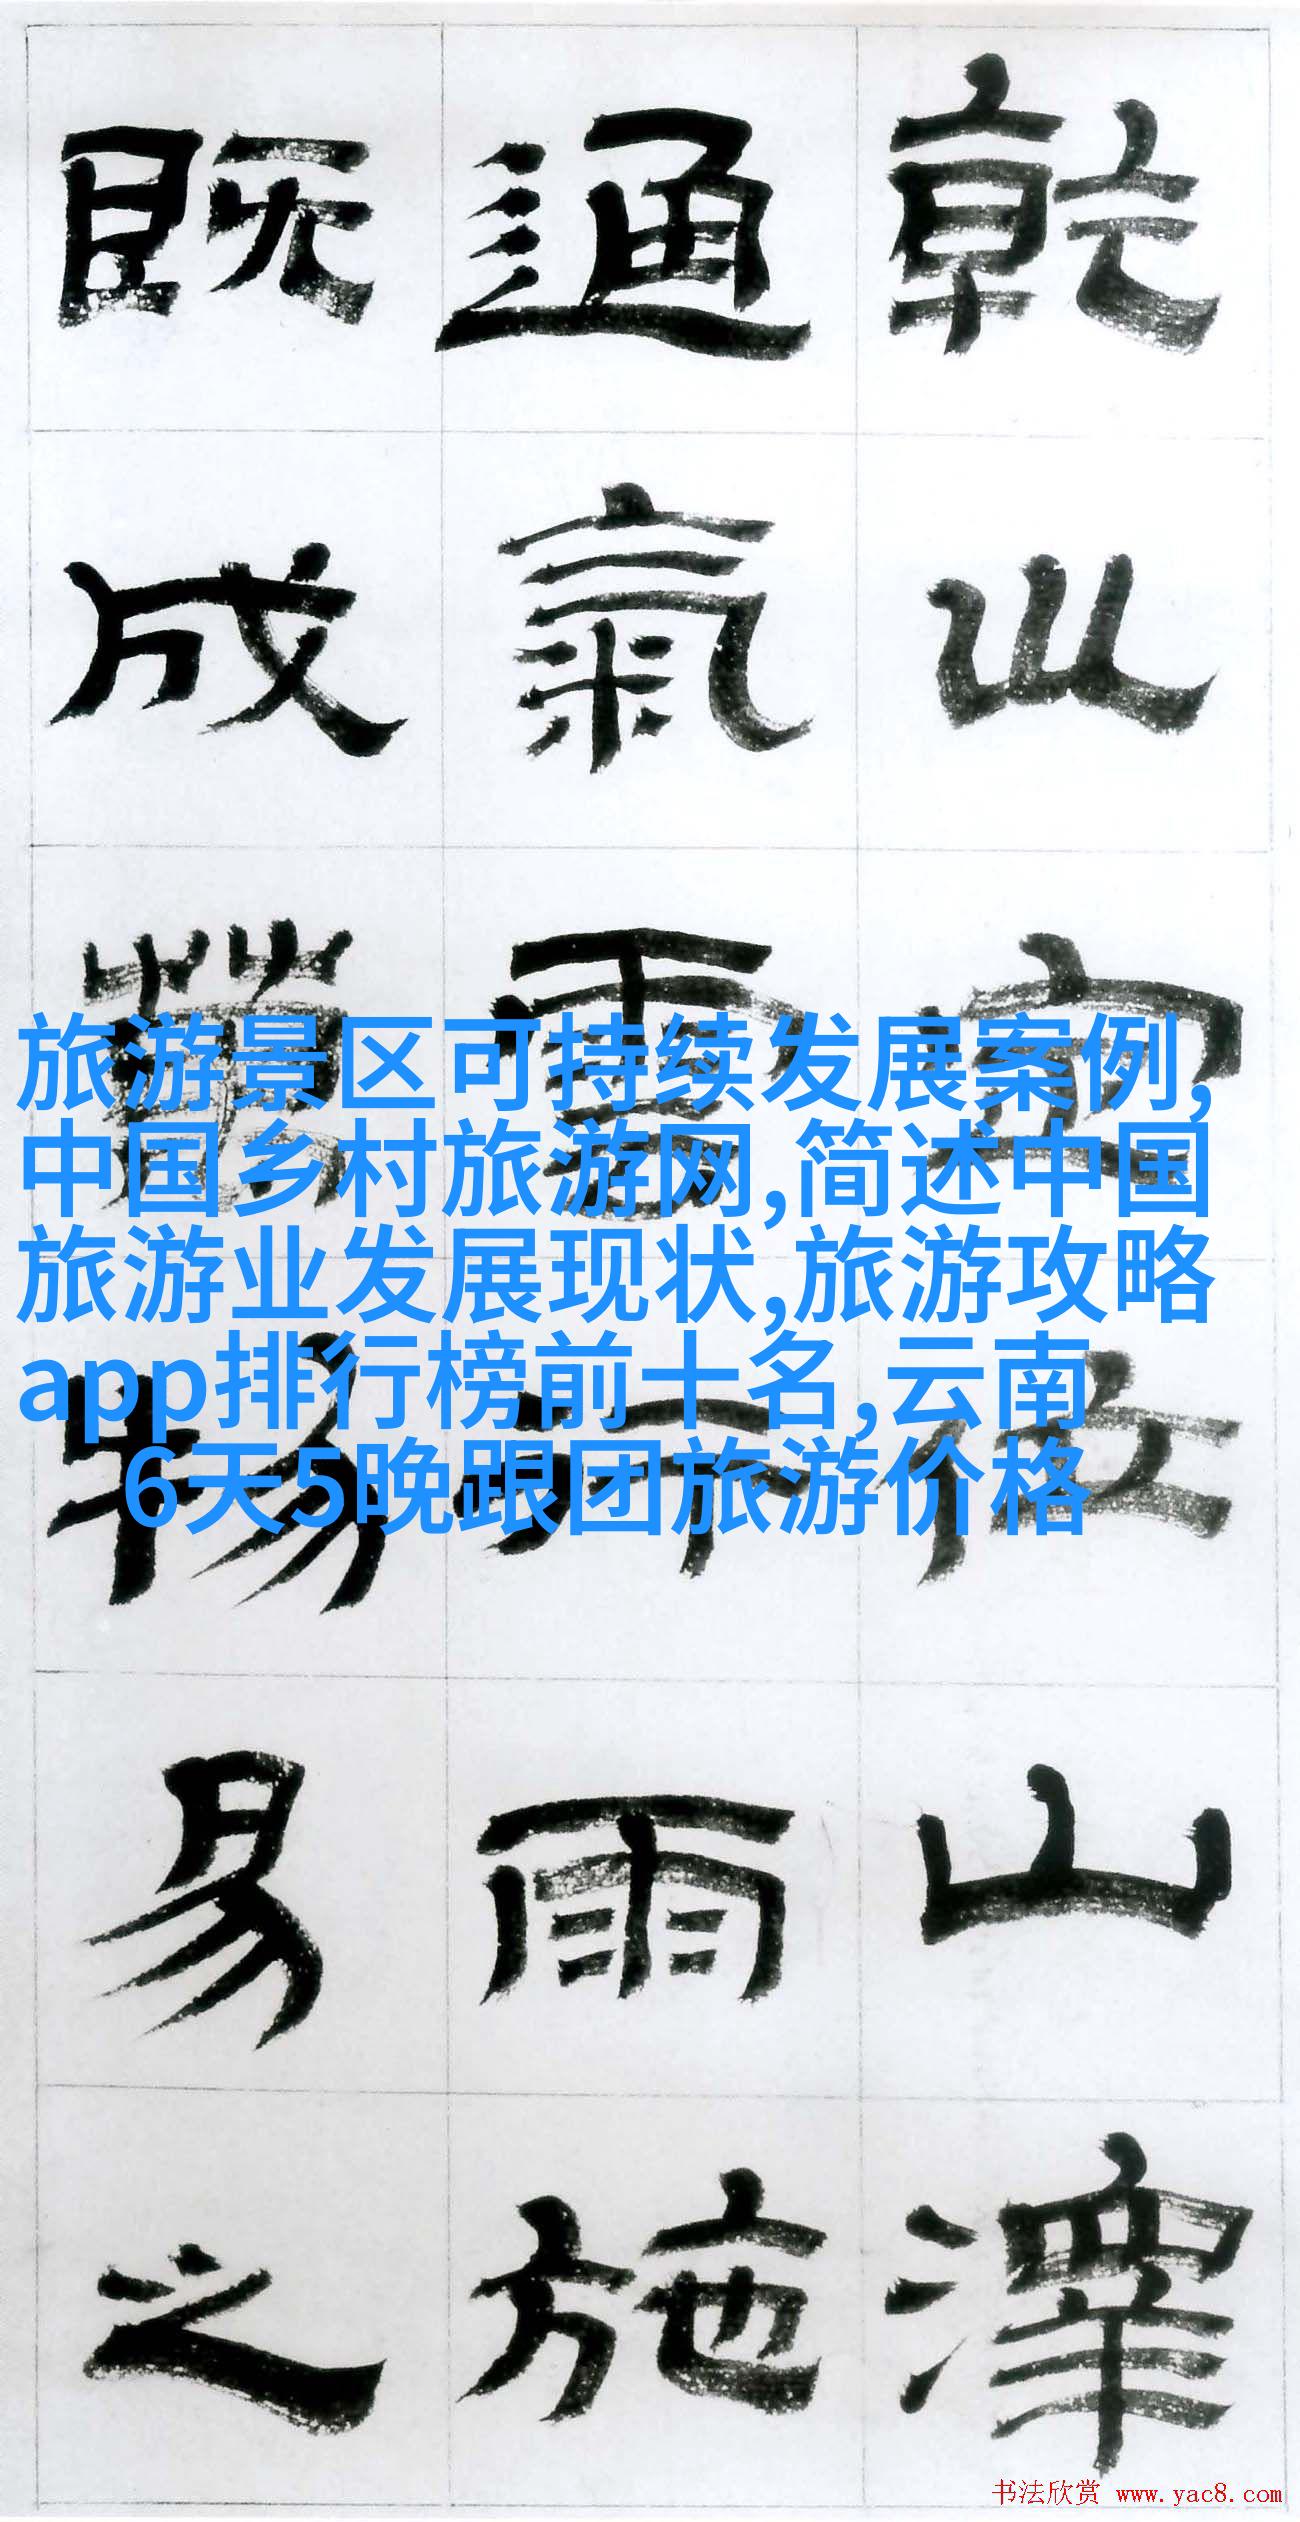 乾巛定位山澤
通氣雲行雨施
既成萬物易之
旅游景区可持续发展案例,
中国乡村旅游网,简述中国
旅游业发展现状,旅游攻略
app排行榜前十名,云南
6天5晚跟团旅游价格
书法欣赏 www.yac8.com